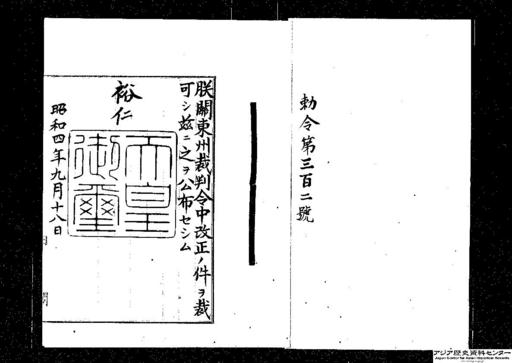 勅令第三百二號
朕關東州裁判令中改正ノ件ヲ裁
可シ茲ニ之ヲ公布セシム
裕仁
天皇御璽
昭和四年九月十八日
アジア歴史資料センター
Japan Center for Asian Historical Records